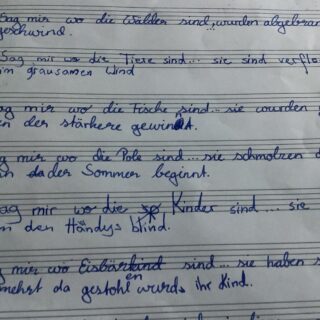 Sag mir wo die Wälder sind... wurden
geschwind.
Sag mir wo die Tiere sind... sie sind
im grausamen Wind
mir wo die Fische sind... sie wurden
der stärkere gewinnt.
mir wo die Pole sind... sie schmolzen
der Sommer beginnt.
mir wo die Kinder sind... sie
den Händys blind.
mir wo Eisbärkind sind... sie haben
da gestohlen wurds ihr Kind.